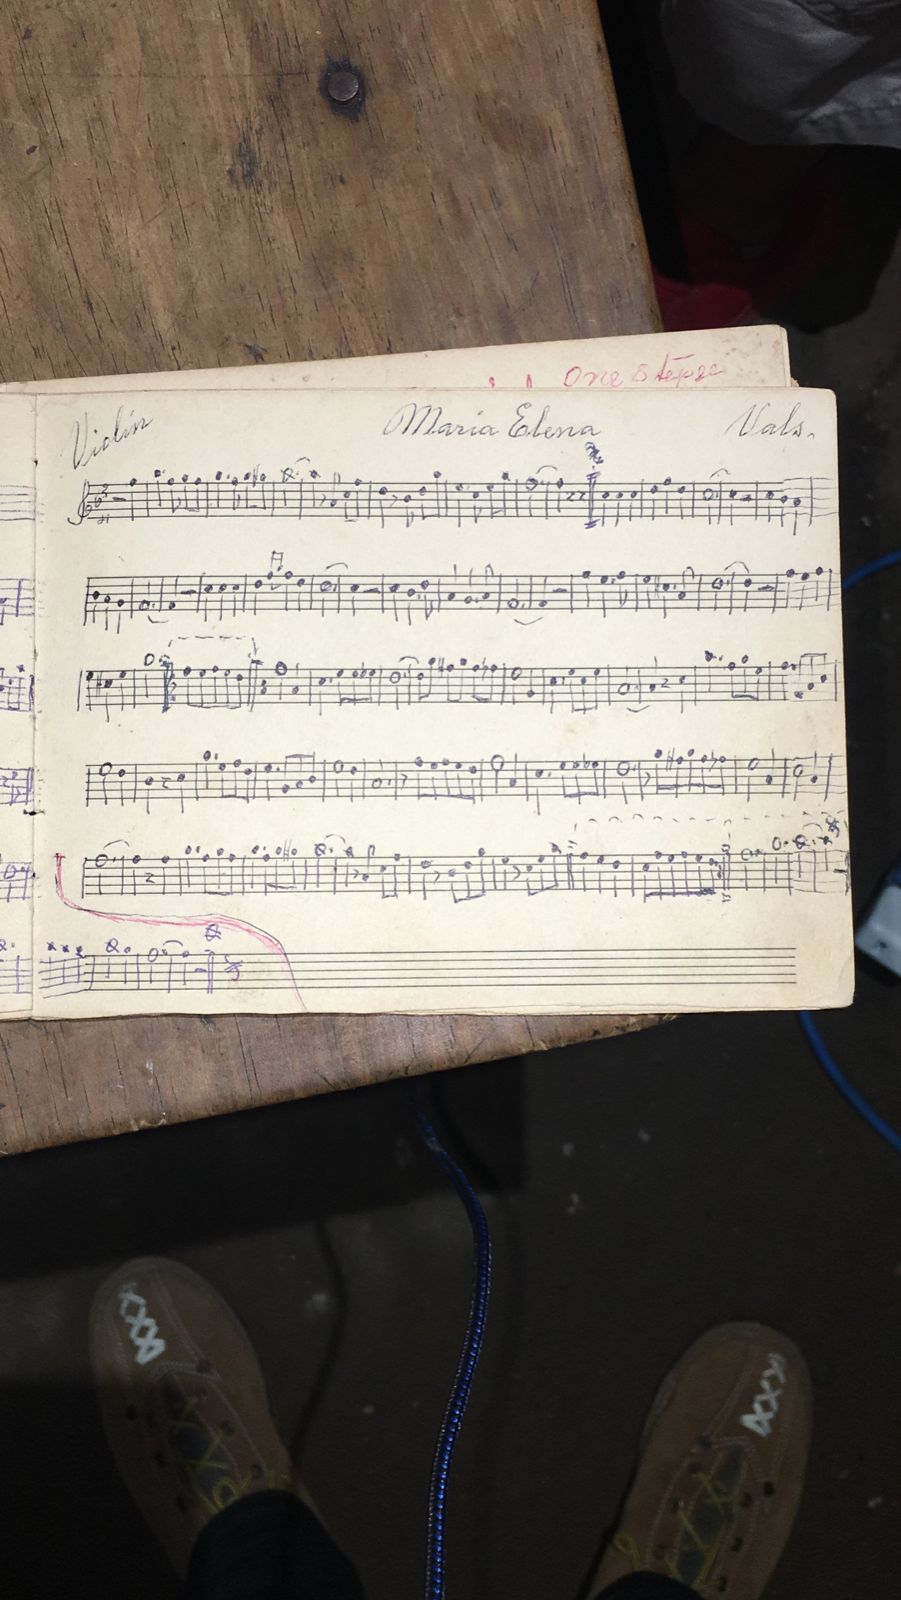 One Steps
Violín María Elena Vals.